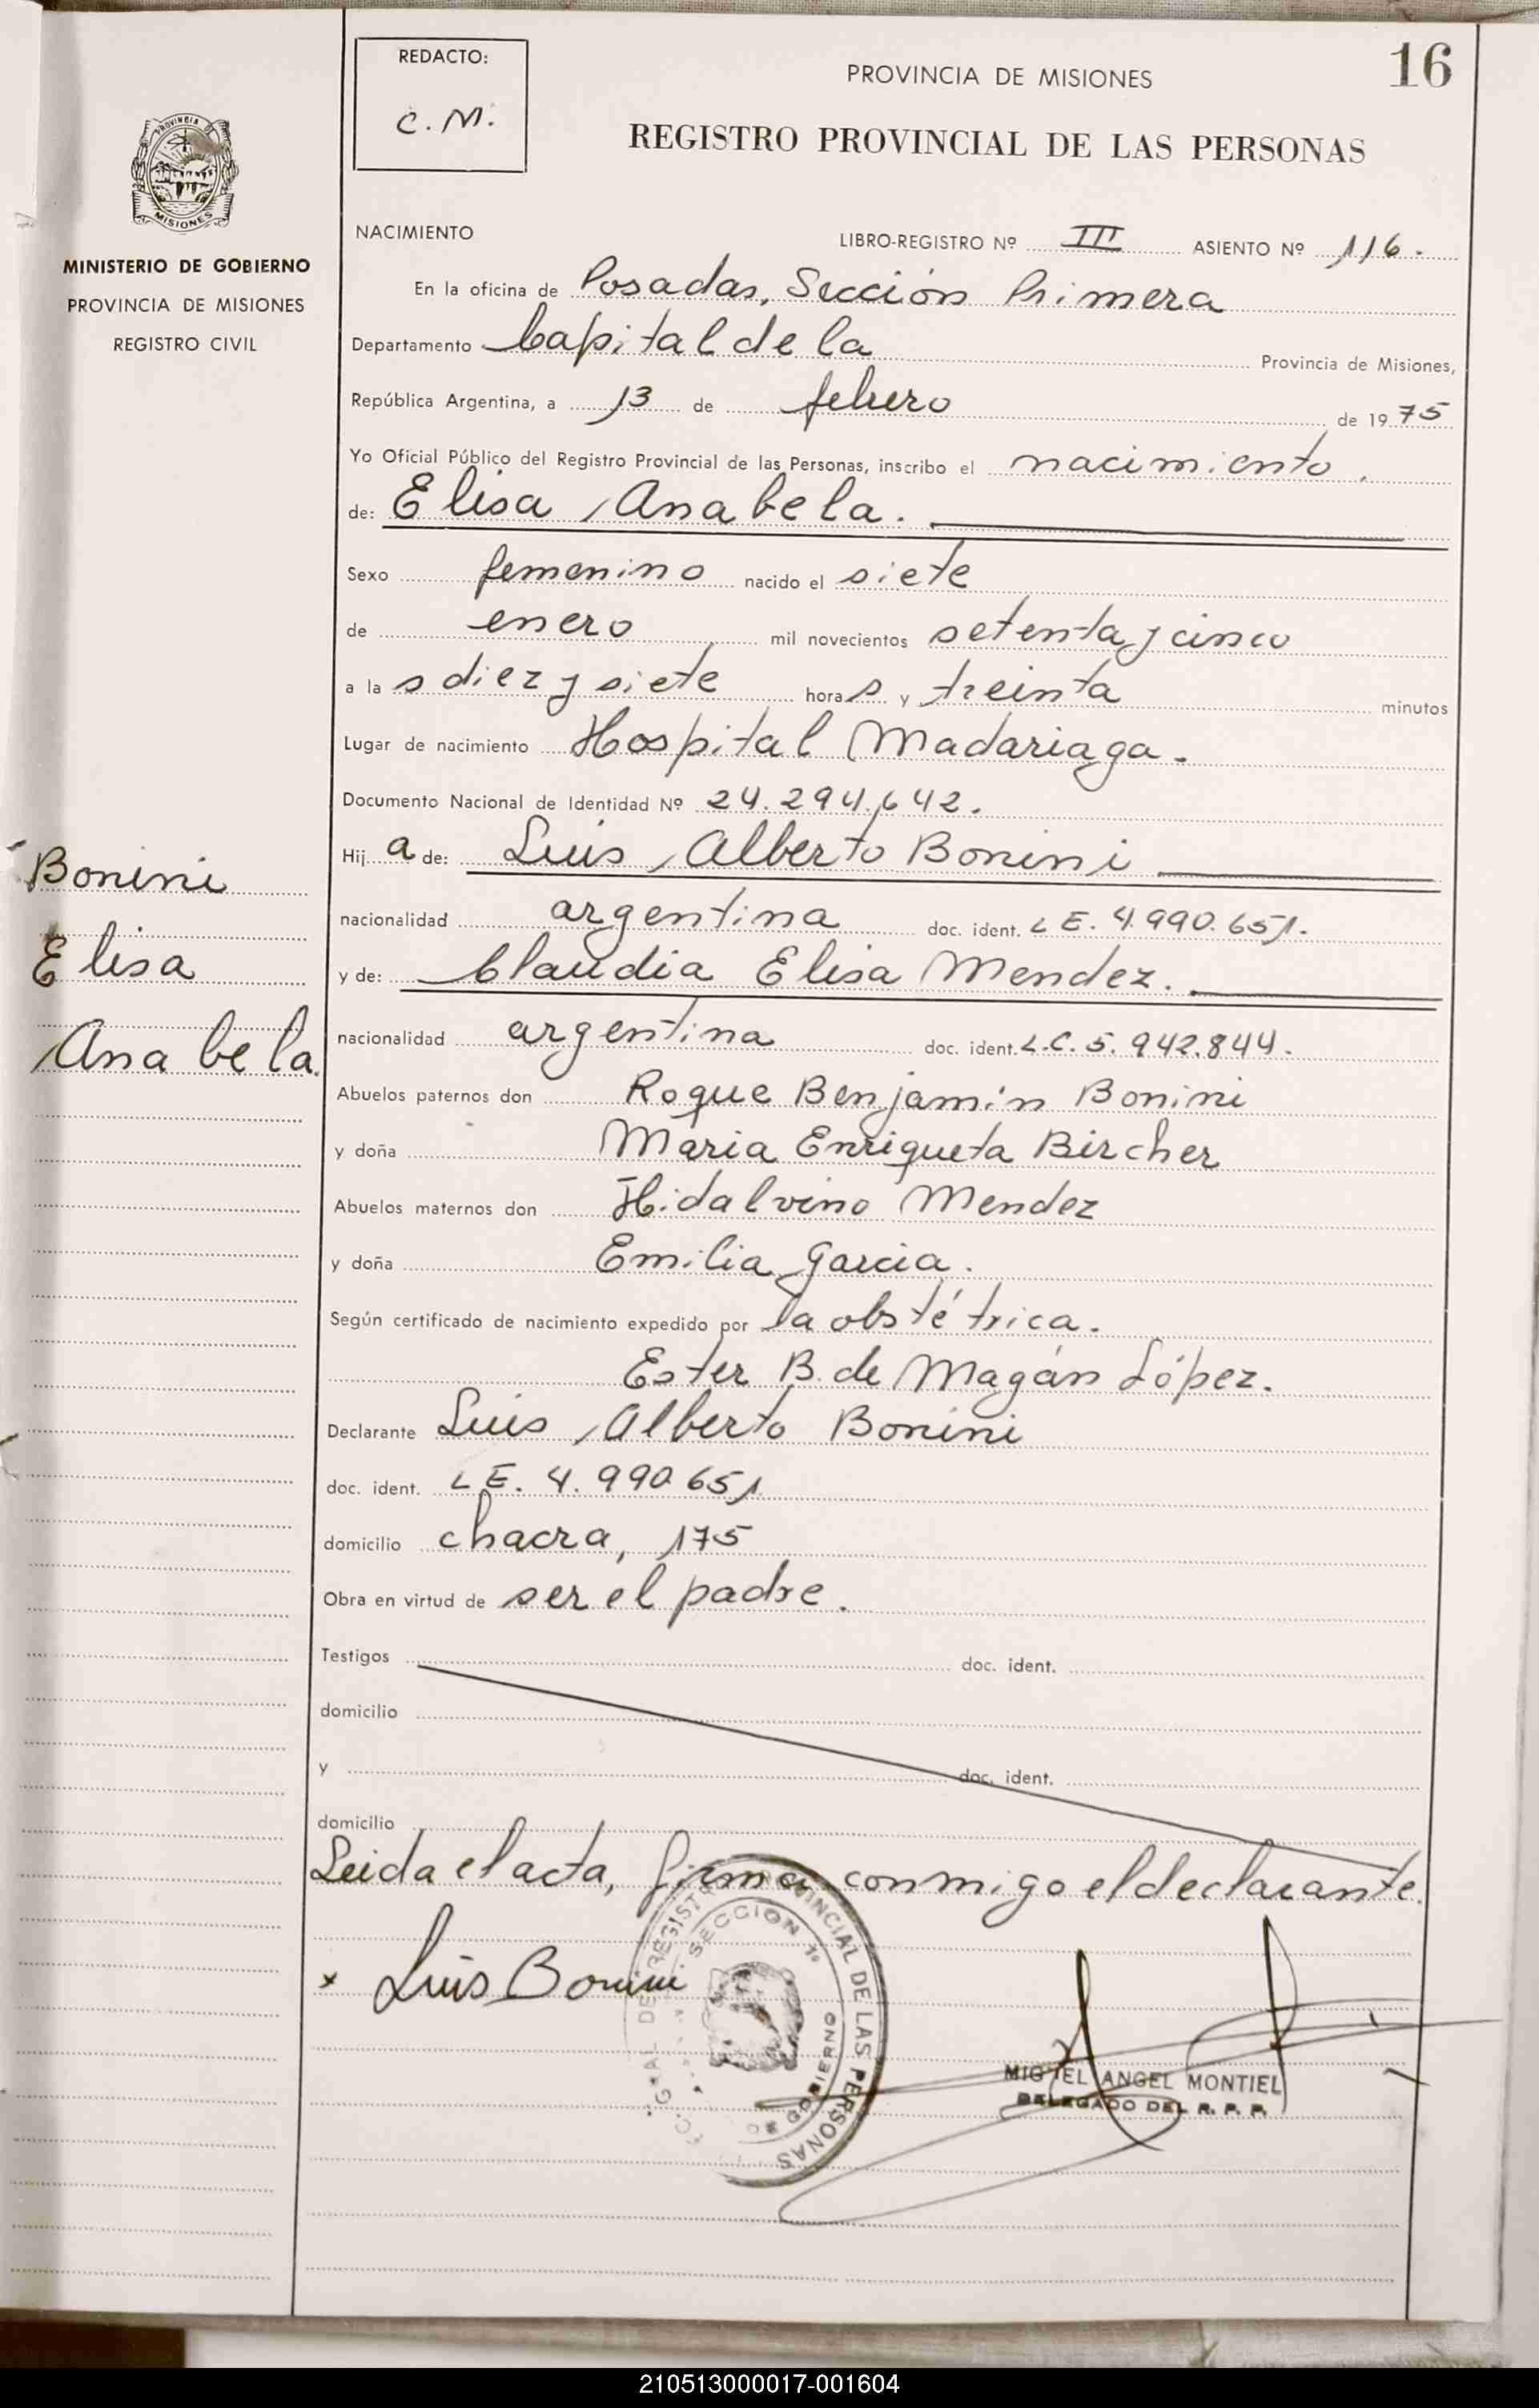 REDACTO:
C. M.
PROVINCIA DE MISIONES
16
REGISTRO PROVINCIAL DE LAS PERSONAS
PROVINCIA
MISIONES
MINISTERIO DE GOBIERNO
PROVINCIA DE MISIONES
REGISTRO CIVIL
NACIMIENTO LIBRO-REGISTRO Nº III ASIENTO Nº 116.
En la oficina de Posadas, Sección Primera
Departamento Capital de la Provincia de Misiones,
República Argentina, a 13 de febrero de 1975
Yo Oficial Público del Registro Provincial de las Personas, inscribo el nacimiento
de: Elisa Anabela.
Sexo femenino nacido el siete
de enero mil novecientos setenta y cinco
a la s diez y siete hora s y treinta minutos
Lugar de nacimiento Hospital Madariaga.
Documento Nacional de Identidad Nº 24.294.642.
Hij a de: Luis Alberto Bonini
nacionalidad argentina doc. ident. L E. 4.990.651.
y de: Claudia Elisa Mendez.
nacionalidad argentina doc. ident. L.C. 5.942.844.
Abuelos paternos don Roque Benjamin Bonini
y doña Maria Enriqueta Bircher
Abuelos maternos don Hidalvino Mendez
y doña Emilia Garcia.
Según certificado de nacimiento expedido por la obstétrica.
Ester B. de Magán López.
Declarante Luis Alberto Bonini
doc. ident. L E. 4.990 651
domicilio chacra, 175
Obra en virtud de ser el padre.
Testigos doc. ident.
domicilio
y doc. ident.
domicilio
Leida el acta, firma conmigo el declarante.
Bonini
Elisa
Anabela.
x Luis Bonini
REGISTRO PROVINCIAL DE LAS PERSONAS
SECCION 1º
GOBIERNO
MIGUEL ANGEL MONTIEL
DELEGADO DEL R. P. P.
210513000017-001604